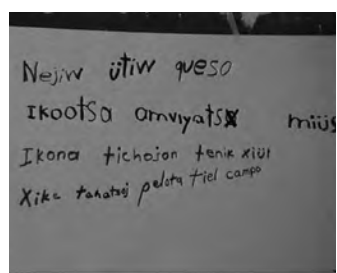 Nejiw ütiw queso
Ikootsa amviyats miüs
Ikona tichojon tenik xiül
Xike tahatsoj pelota tiel campo